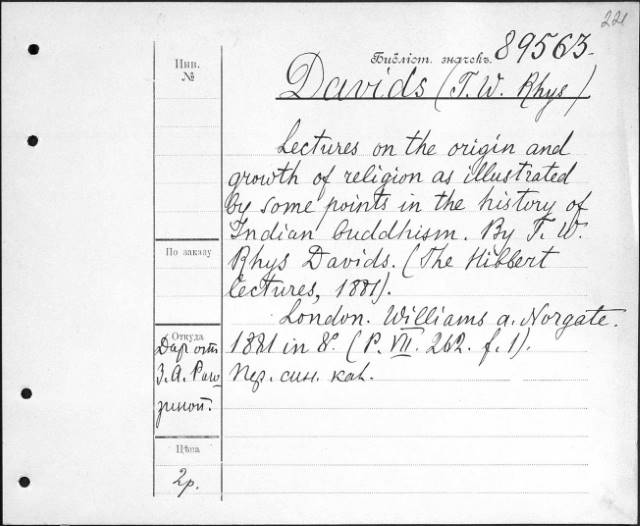 221
Библіот. значекъ. 89563.
Инв.
№
Davids (T. W. Rhys)
Lectures on the origin and
growth of religion as illustrated
by some points in the history of
Indian buddhism. By T. W.
По заказу
Rhys Davids. (The Hibbert
lectures, 1881).
London. Williams a. Norgate.
Откуда
1881 in 8°. (P. VII. 262. f. 1).
Пер. син. кал.
Дар отъ
З. А. Раго
зиной.
Цѣна
2р.